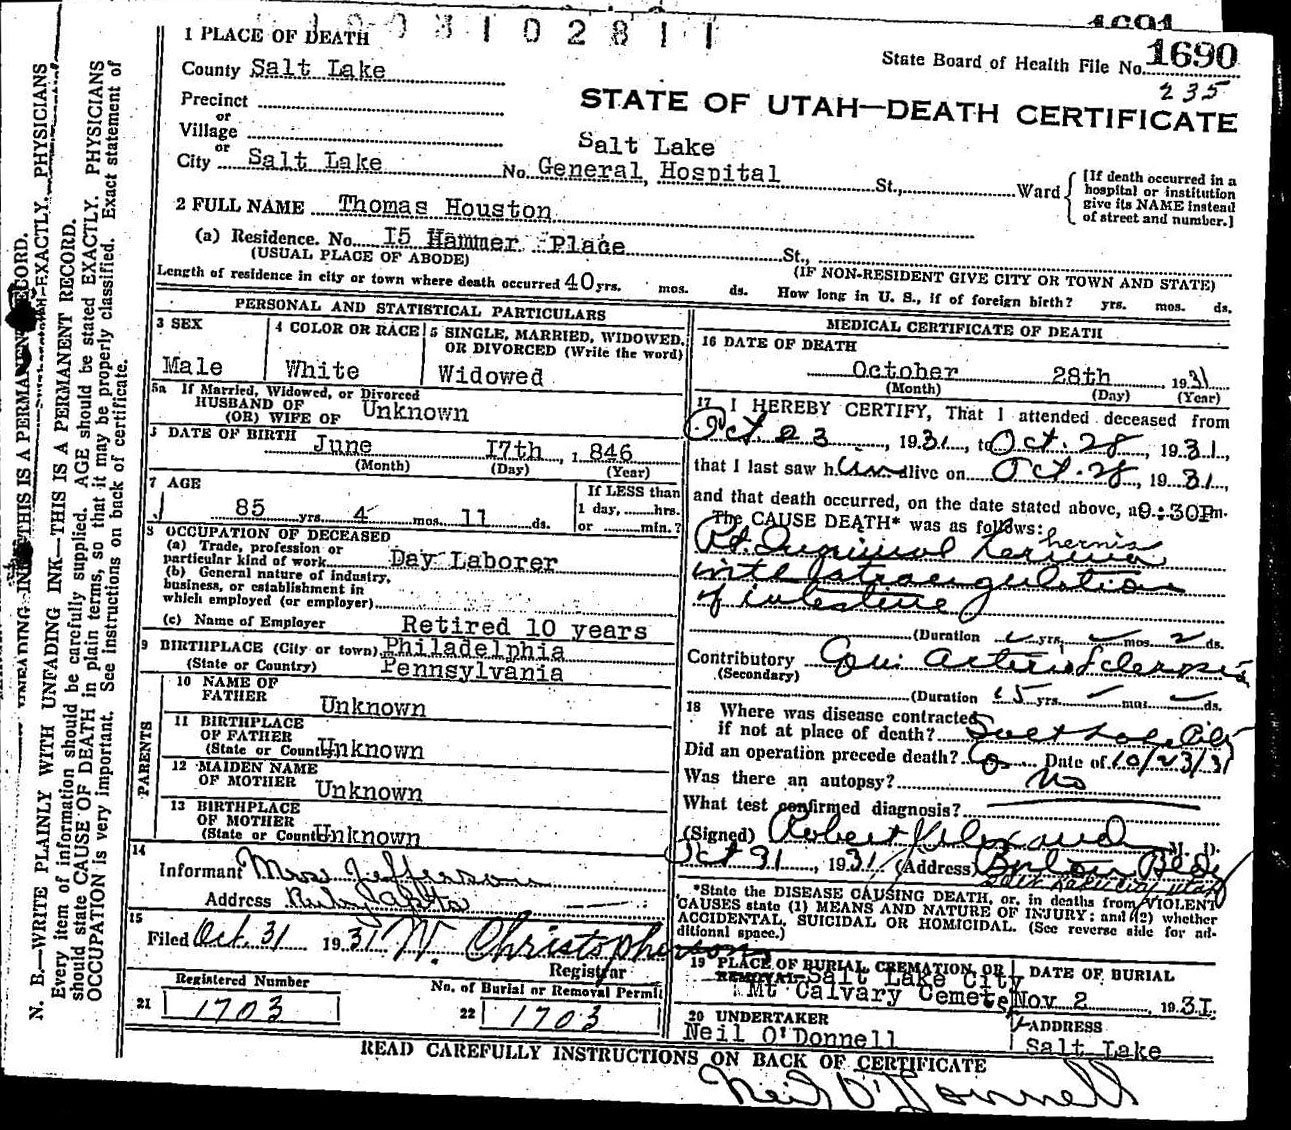 1 PLACE OF DEATH
State Board of Health File No. 1690
235
County Salt Lake
STATE OF UTAH—DEATH CERTIFICATE
Precinct
or
Village
or
City Salt Lake No. Salt Lake General Hospital St., Ward
[If death occurred in a
hospital or institution
give its NAME instead
of street and number.]
2 FULL NAME Thomas Houston
(a) Residence. No. I5 Hammer Place St.,
(USUAL PLACE OF ABODE) (IF NON-RESIDENT GIVE CITY OR TOWN AND STATE)
Length of residence in city or town where death occurred 40 yrs. mos. ds. How long in U. S., if of foreign birth? yrs. mos. ds.
PERSONAL AND STATISTICAL PARTICULARS
3 SEX
Male
4 COLOR OR RACE
White
5 SINGLE, MARRIED, WIDOWED,
OR DIVORCED (Write the word)
Widowed
5a If Married, Widowed, or Divorced
HUSBAND OF
(OR) WIFE OF Unknown
DATE OF BIRTH June I7th, 1846
(Month) (Day) (Year)
7 AGE
85 yrs. 4 mos. 11 ds.
If LESS than
1 day, hrs.
or min.?
8 OCCUPATION OF DECEASED
(a) Trade, profession or
particular kind of work Day Laborer
(b) General nature of industry,
business, or establishment in
which employed (or employer)
(c) Name of Employer Retired 10 years
9 BIRTHPLACE (City or town) Philadelphia
(State or Country) Pennsylvania
PARENTS
10 NAME OF
FATHER Unknown
11 BIRTHPLACE
OF FATHER
(State or Country) Unknown
12 MAIDEN NAME
OF MOTHER Unknown
13 BIRTHPLACE
OF MOTHER
(State or Country) Unknown
14
Informant Mrs Jefferson
Address
15
Filed Oct. 31 1931 W. Christopherson
Registrar
Registered Number
21 1703
No. of Burial or Removal Permit
22 1703
MEDICAL CERTIFICATE OF DEATH
16 DATE OF DEATH
October 28th 1931
(Month) (Day) (Year)
17 I HEREBY CERTIFY, That I attended deceased from
Oct 23, 1931, to Oct. 28, 1931,
that I last saw him alive on Oct. 28, 1931,
and that death occurred, on the date stated above, at 9:30P m.
The CAUSE DEATH* was as follows:
hernia
Rt. Inguinal hernia
with strangulation
of intestine
(Duration yrs. mos. 2 ds.
Contributory Gen. Arterio Sclerosis
(Secondary)
(Duration 15 yrs. mos. ds.
18 Where was disease contracted
if not at place of death? Salt Lake City
Did an operation precede death? Date of 10/23/31
Was there an autopsy? No
What test confirmed diagnosis?
(Signed) Robert Alexander M. D.
Oct 31, 1931 (Address) Boston Bldg
Salt Lake City Utah
*State the DISEASE CAUSING DEATH, or, in deaths from VIOLENT
CAUSES state (1) MEANS AND NATURE OF INJURY; and (2) whether
ACCIDENTAL, SUICIDAL OR HOMICIDAL. (See reverse side for ad-
ditional space.)
19 PLACE OF BURIAL CREMATION, OR
REMOVAL Salt Lake City
Mt Calvary Cemete
DATE OF BURIAL
Nov 2, 1931.
20 UNDERTAKER
Neil O'Donnell
ADDRESS
Salt Lake
READ CAREFULLY INSTRUCTIONS ON BACK OF CERTIFICATE
Neil O'Donnell
N. B.—WRITE PLAINLY WITH UNFADING INK—THIS IS A PERMANENT RECORD.
Every item of information should be carefully supplied. AGE should be stated EXACTLY. PHYSICIANS
should state CAUSE OF DEATH in plain terms, so that it may be properly classified. Exact statement of
OCCUPATION is very important. See instructions on back of certificate.